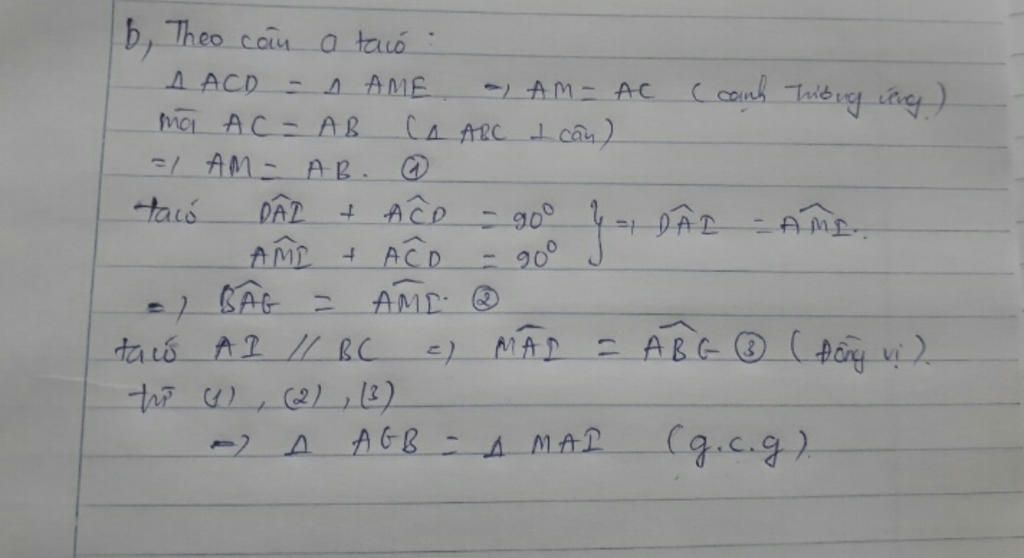 b, Theo câu a ta có :
Δ ACD = Δ AME. => AM = AC ( cạnh tương ứng )
mà AC = AB ( Δ ABC ⊥ cân )
=> AM = AB. ①
ta có D̂AI + ÂCD = 90⁰ } => D̂AI = ÂMI.
ÂMI + ÂCD = 90⁰
=> B̂AG = ÂMI. ②
ta có AI // BC => M̂AI = ÂBG ③ ( Đồng vị ).
từ (1) , (2) , (3)
=> Δ AGB = Δ MAI ( g.c.g ).